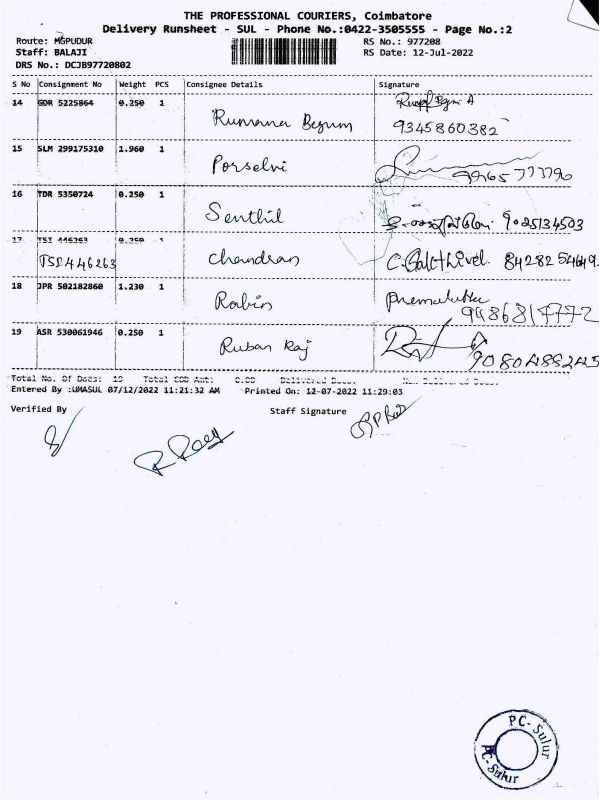 THE PROFESSIONAL COURIERS, Coimbatore
Delivery Runsheet - SUL - Phone No.:0422-3505555 - Page No.:2
Route: MGPUDUR RS No.: 977208
Staff: BALAJI RS Date: 12-Jul-2022
DRS No.: DCJB97720802
S No Consignment No Weight PCS Consignee Details Signature
14 GDR 5225864 0.250 1 Rumana Begum A
9345860382
15 SLM 299175310 1.960 1 Porselvi
16 TDR 5350724 0.250 1 Senthil 9025134503
17 TSI 446263 0.250 1 Chandran
TSI 446263
18 JPR 502182860 1.230 1 Rabin
19 ASR 530061946 0.250 1 Ruban Raj
Total No. Of Docs: 19 Total COD Amt: 0.00 Delivered Docs:
Entered By :UMASUL 07/12/2022 11:21:32 AM Printed On: 12-07-2022 11:29:03
Verified By Staff Signature
PC-Sulur
PC-Sulur